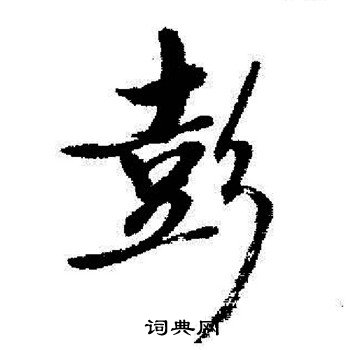 彭
词典网